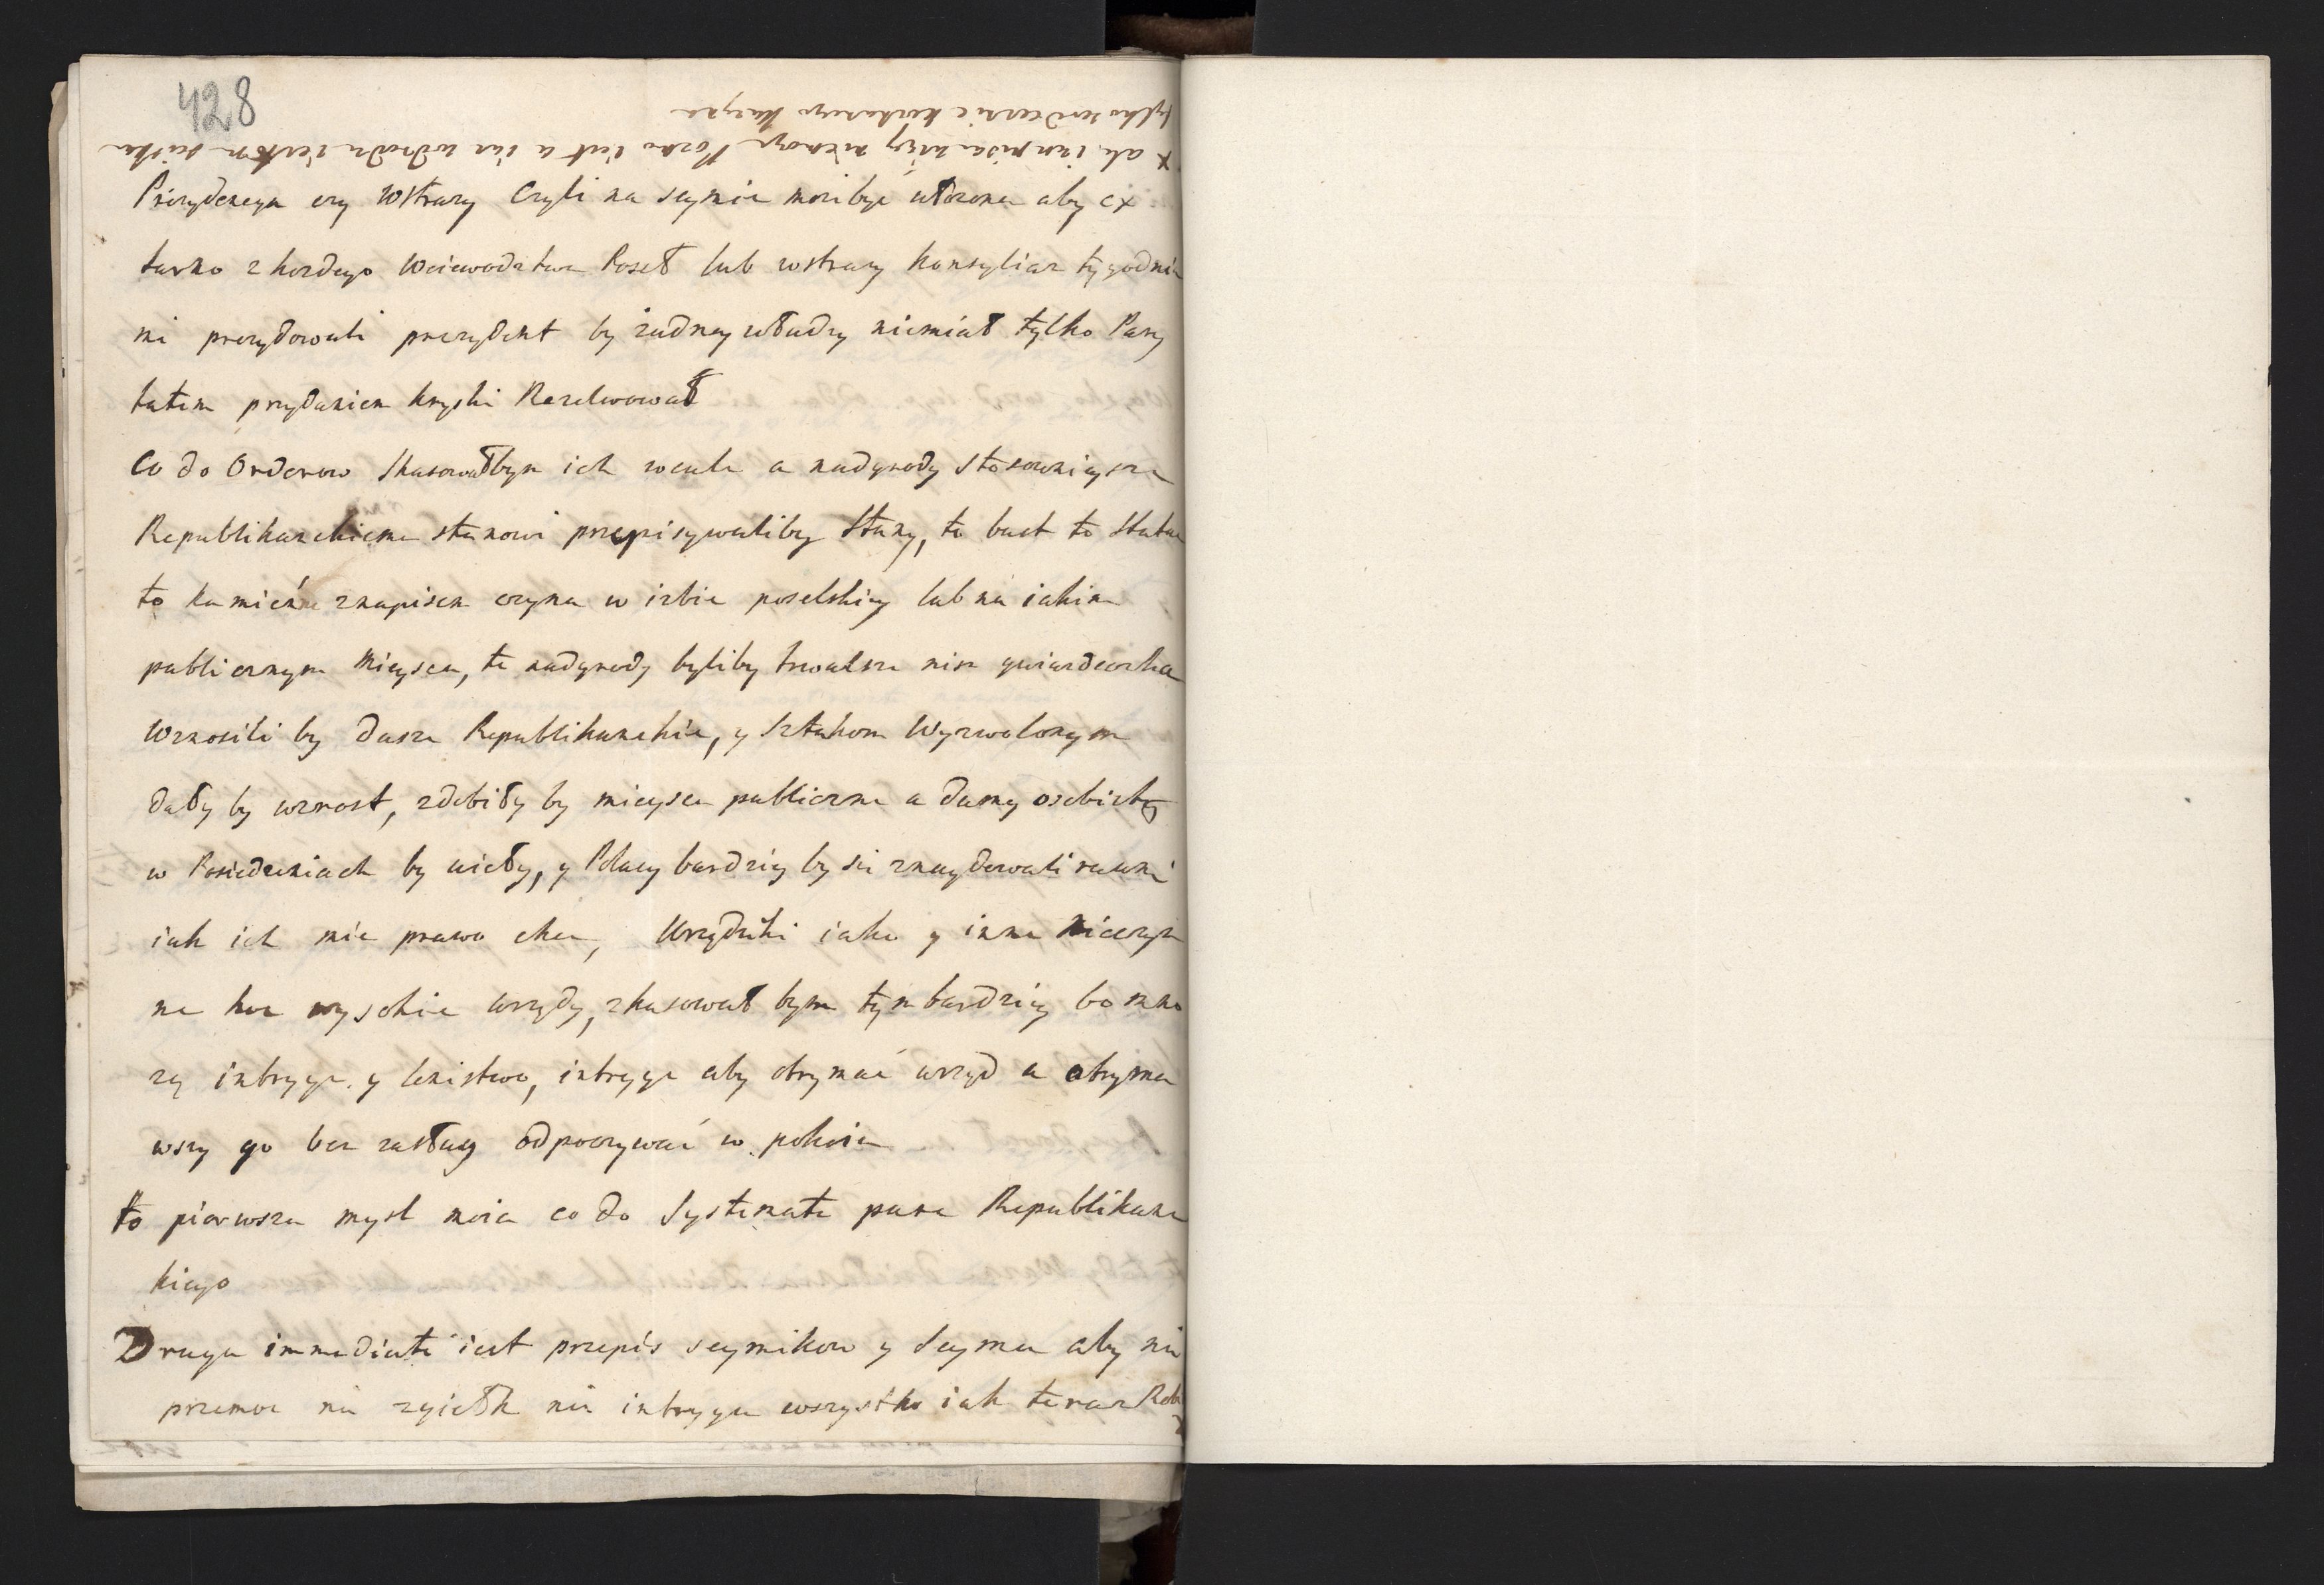 428
x ale inn pisa wizy niemoge
tylko serdecznie każdego
Prezydencya czy wstrazy Czyli na seymie mozebyc ułozona aby ex
turno z kozdego Woiewodztwa Poseł lub wstrazy konsyliarz tygodnia
mi prezydowali prezydent by żadney władzy niemiał tylko Pary
tatem przydaniem kryski Rezelwował
Co do Orderow skasowałbym ich wcale a nadgrody stosownieysze
Republikanckiemu stanowi przepisywaliby stany, to bust to statue
to kamień z napisem czynu w izbie poselskiey lub na iakim
publicznym Mieyscu, te nadgrody byliby trwalsze nisz gwiazdeczka
Wznosili by Dusze Republikanckie, y Sztukom Wyzwolonym
dały by wzrost, zdobiły by mieysca publiczne a dumy osobistey
w Posiedzeniach by uieły, y Polacy bardziey by sie znaydowali rawni
iak ich mie prawo chce, Urzędniki iako y inne Nieczyn
ne koz wysokie urzędy, zkasował bym tym bardziey bo mno
zą intryge y lenistwo, intryge aby otrymać urząd a otryma
wszy go bez zasług odpoczywać w pokoiu
to pierwsza mysl moia co do Systematu pure Republikanc
kiego
Druga immediate iest przepis seymikow y Seymu aby nie
przemoc nie zgiełk nie intryga wszystko iak teraz Robi